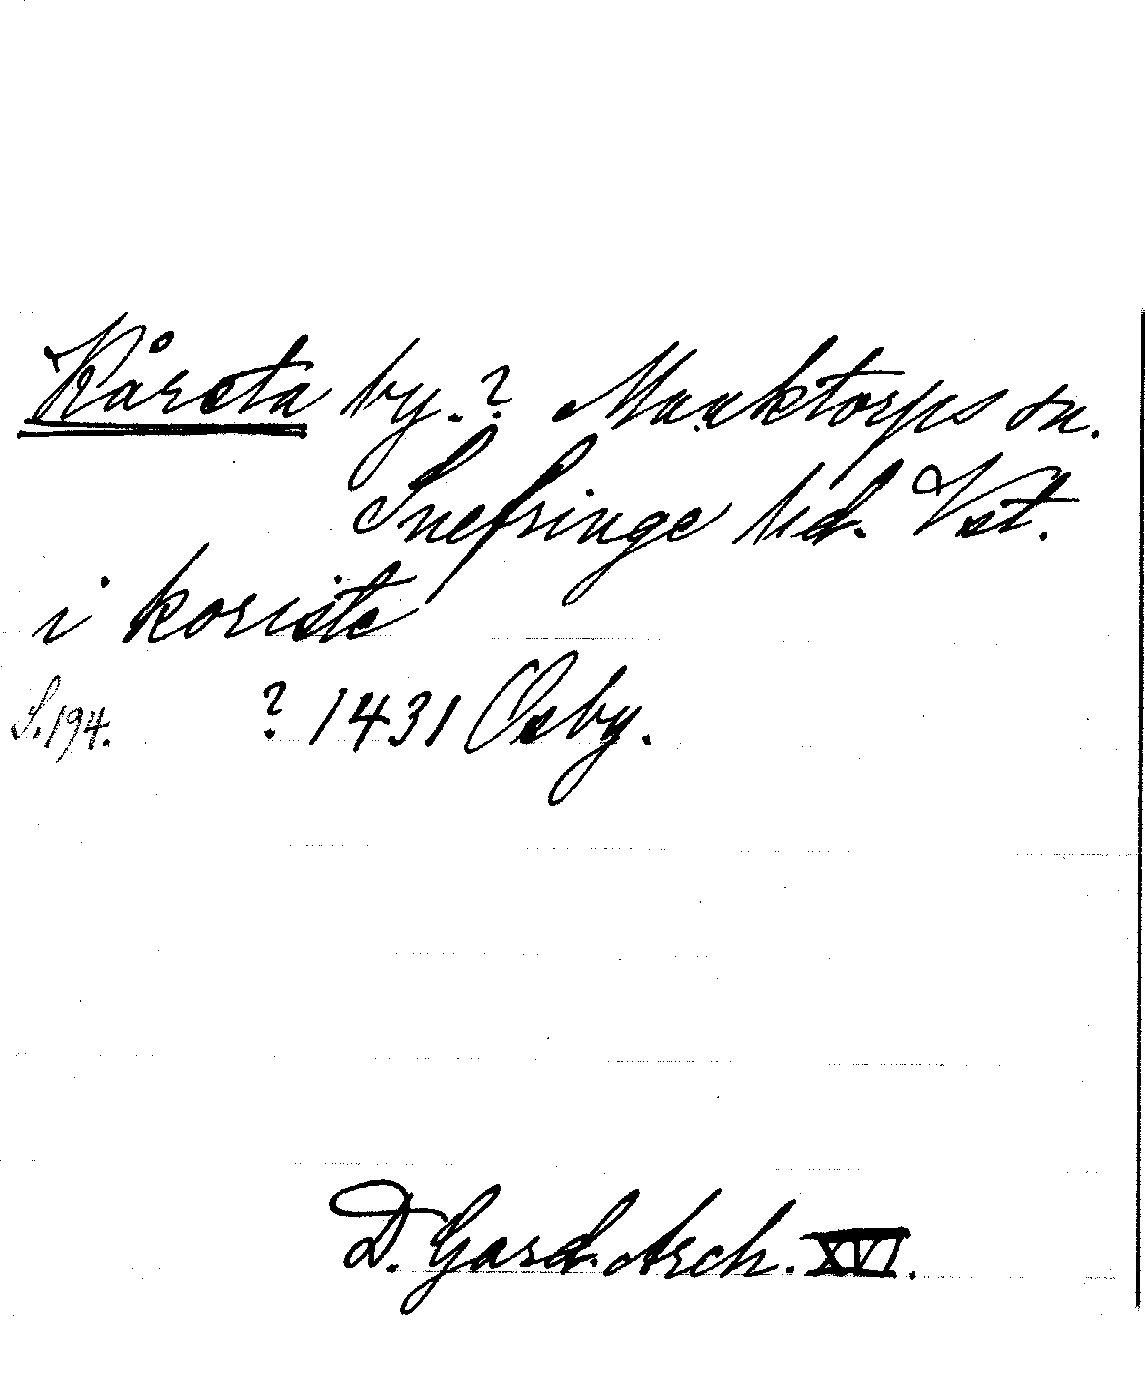 Kårsta by.? Munktorps sn.
Snefringe hd. Vst.
i korista
S. 194. ? 1431 Osby.
D. Gard. Arch. XVI.